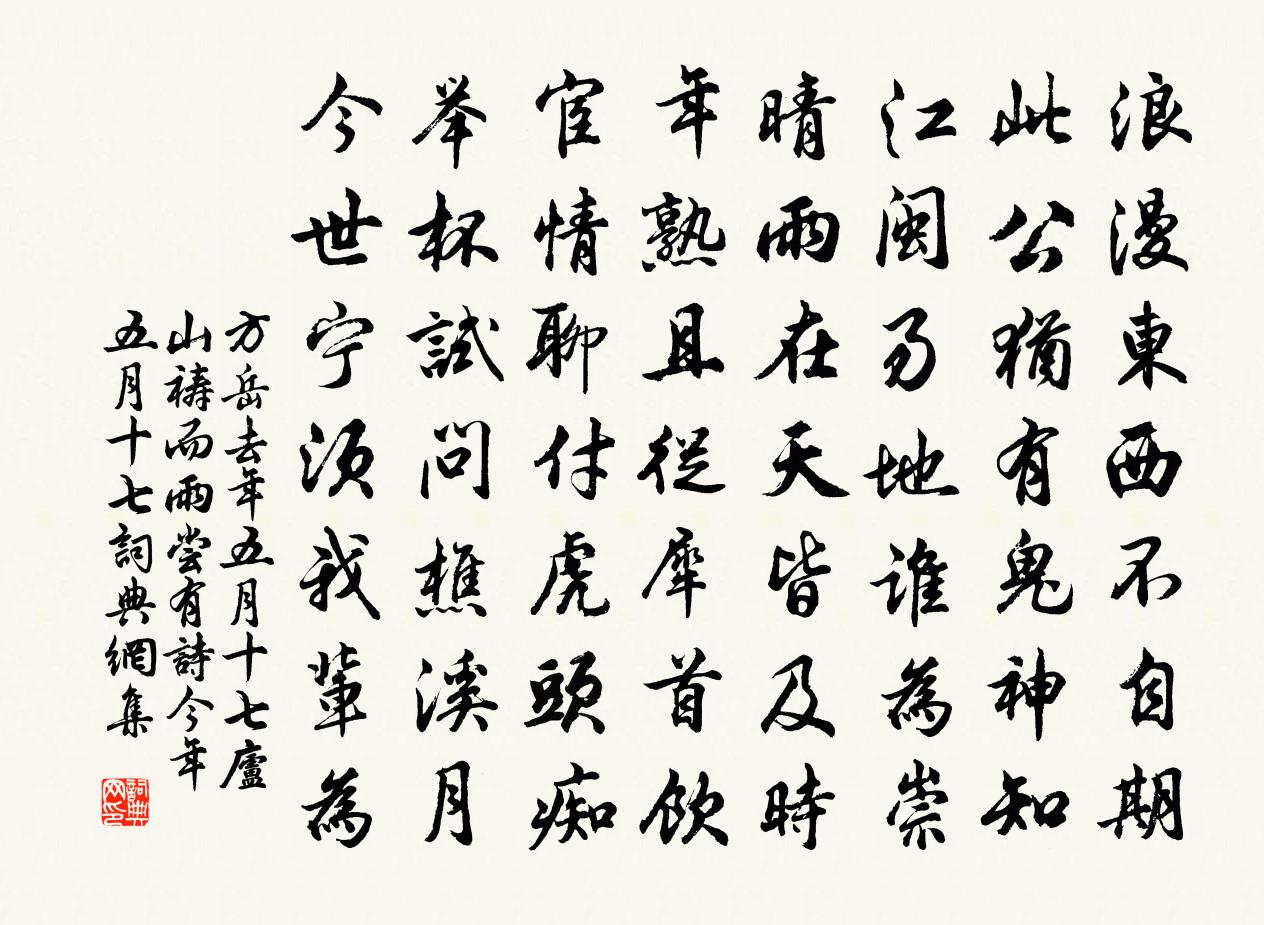 浪漫東西不自期
此公猶有鬼神知
江閩易地誰為祟
晴雨在天皆及時
年熟且從犀首飲
宦情聊付虎頭痴
举杯試問樵溪月
今世宁須我輩為
方岳去年五月十七廬
山禱而雨尝有詩今年
五月十七詞典網集
詞典
网印